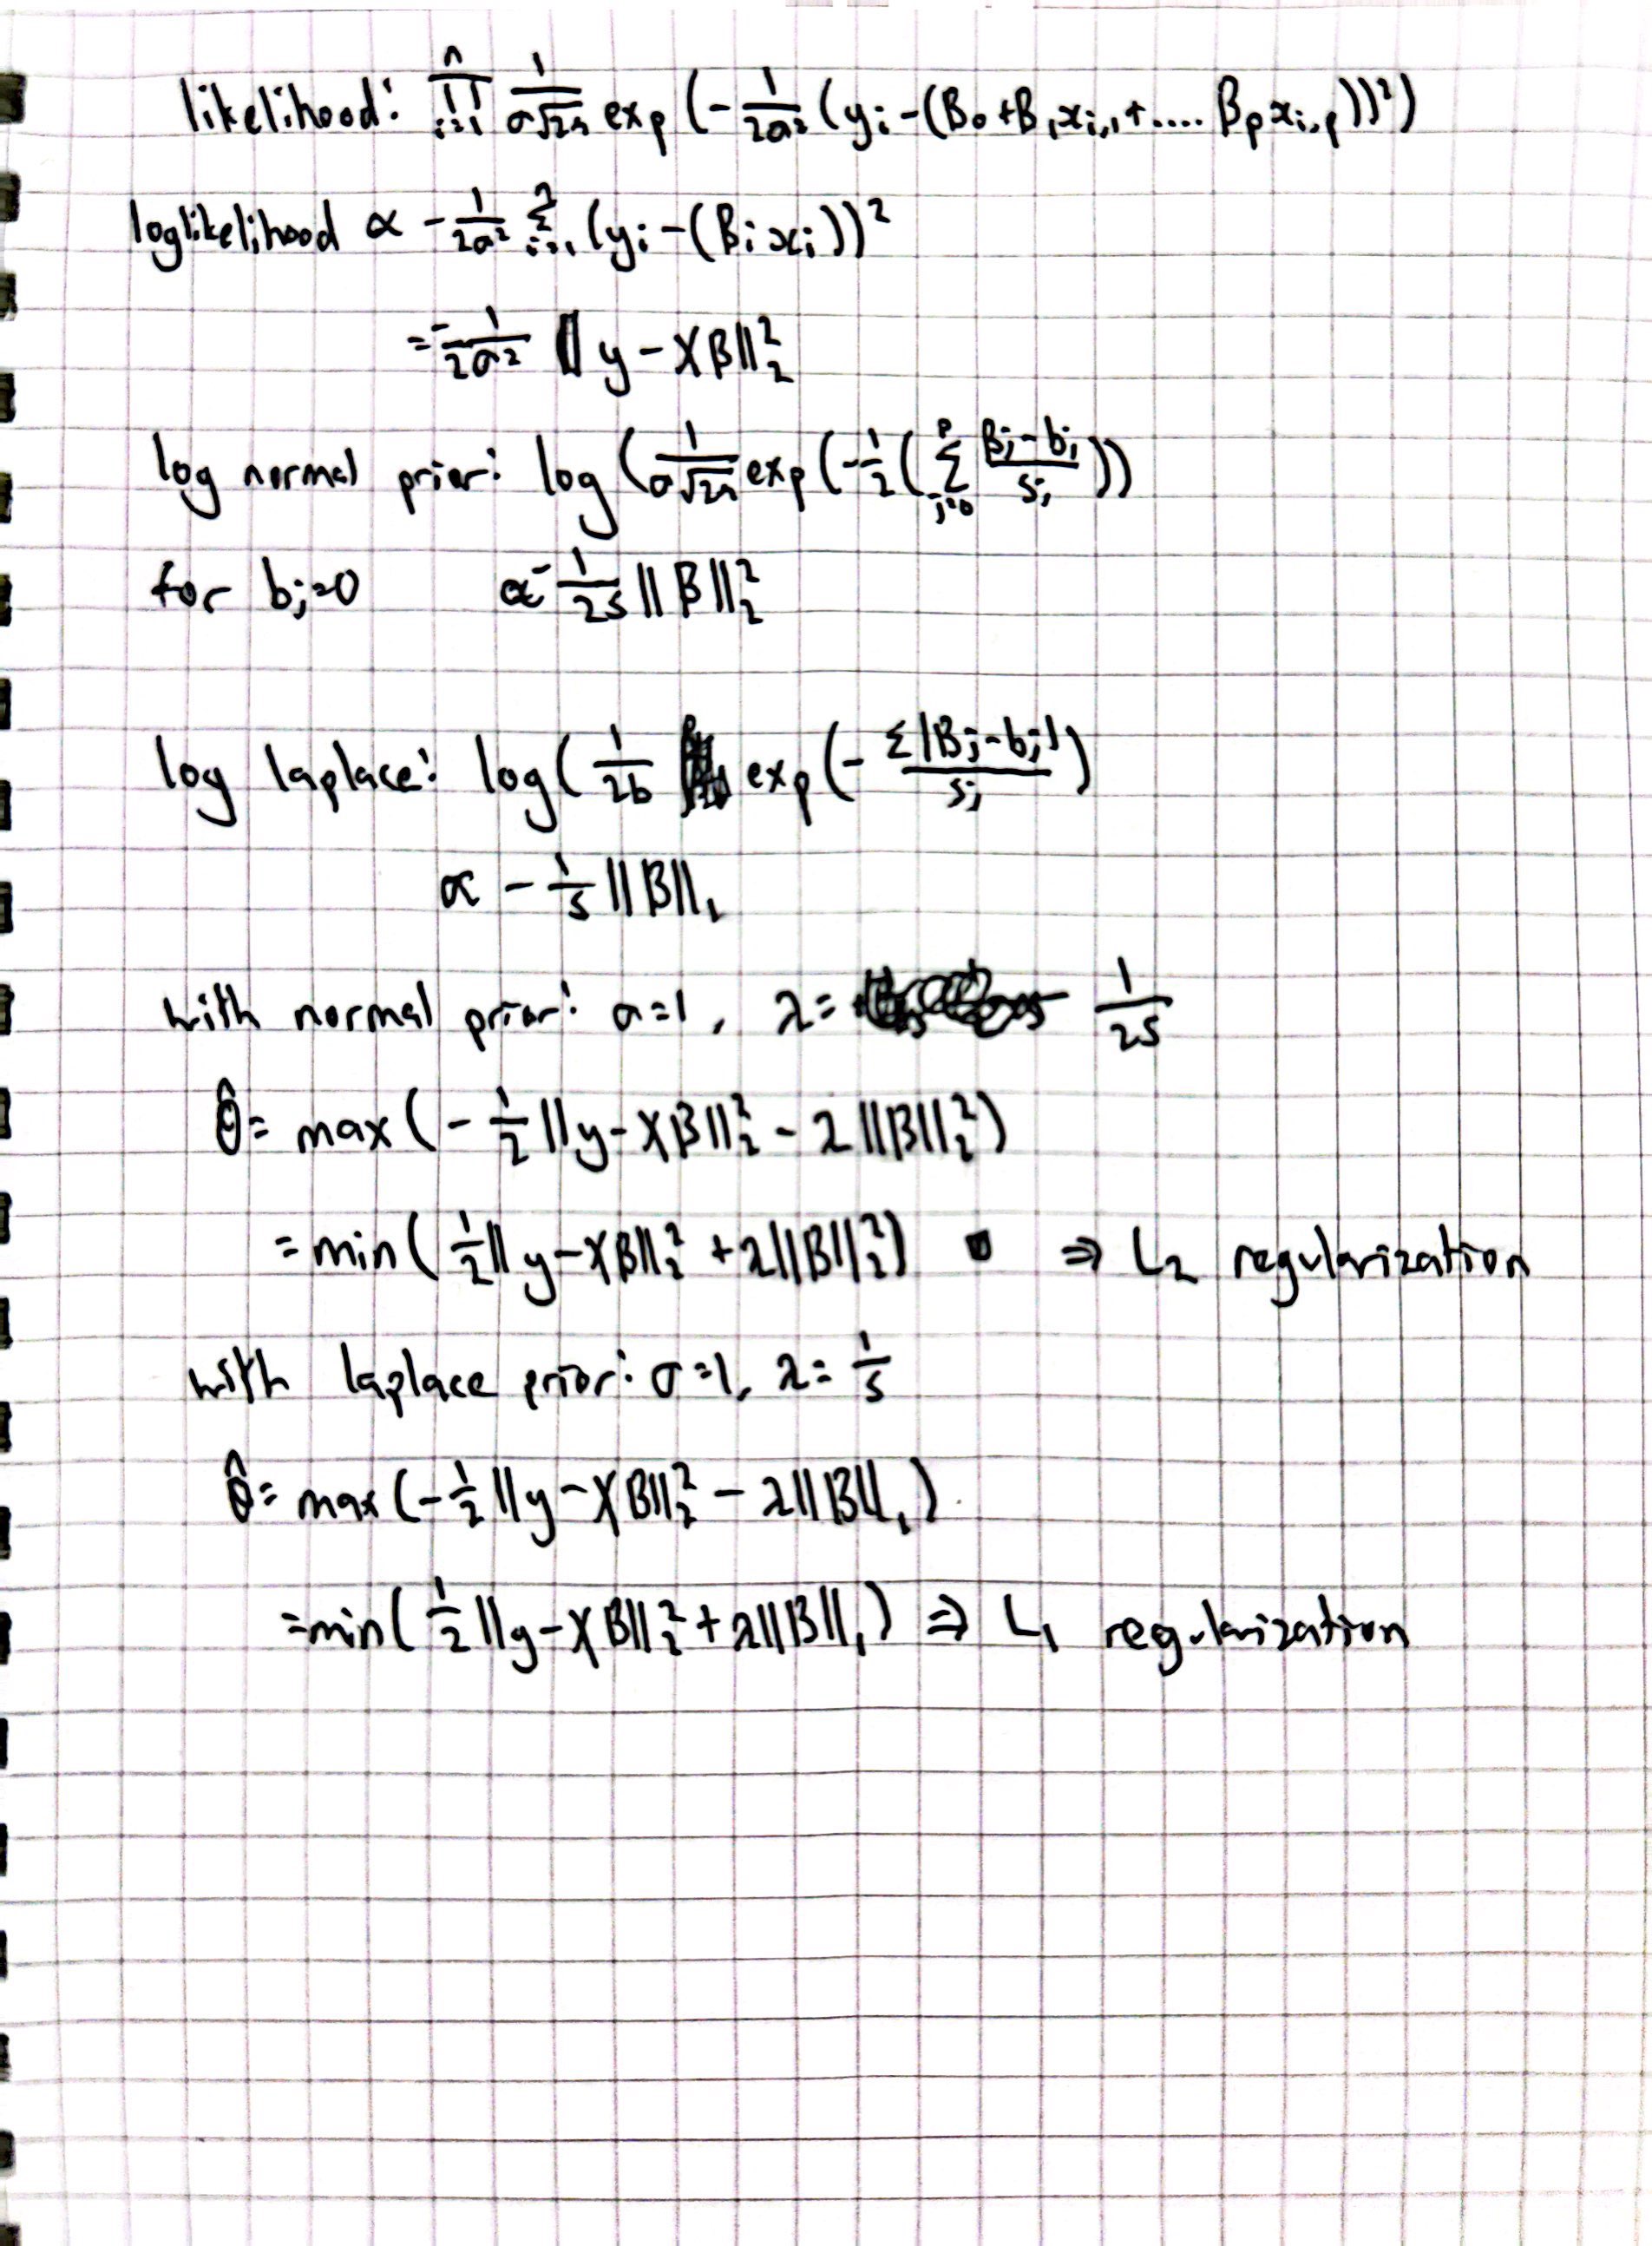 likelihood: ∏_{i=1}^{n} 1/(σ√2π) exp(-1/(2σ²) (y_i - (B_0 + B_1 x_{i,1} + .... B_p x_{i,p}))²)
loglikelihood ∝ -1/(2σ²) Σ_{i=1}^{n} (y_i - (B_i x_i))²
= -1/(2σ²) ||y - Xβ||₂²
log normal prior: log(1/(σ√2π) exp(-1/2 (Σ_{j=0}^{p} (B_j - b_j)/s_j))
for b_j=0 ∝ -1/(2s) ||β||₂²
log laplace: log(1/(2b) exp(-Σ|B_j - b_j|/s_j)
∝ -1/s ||β||₁
with normal prior: σ=1, λ= 1/(2s)
θ̂ = max(-1/2 ||y - Xβ||₂² - λ||β||₂²)
= min(1/2 ||y - Xβ||₂² + λ||β||₂²) ⇒ L₂ regularization
with laplace prior: σ=1, λ= 1/s
θ̂ = max(-1/2 ||y - Xβ||₂² - λ||β||₁)
= min(1/2 ||y - Xβ||₂² + λ||β||₁) ⇒ L₁ regularization